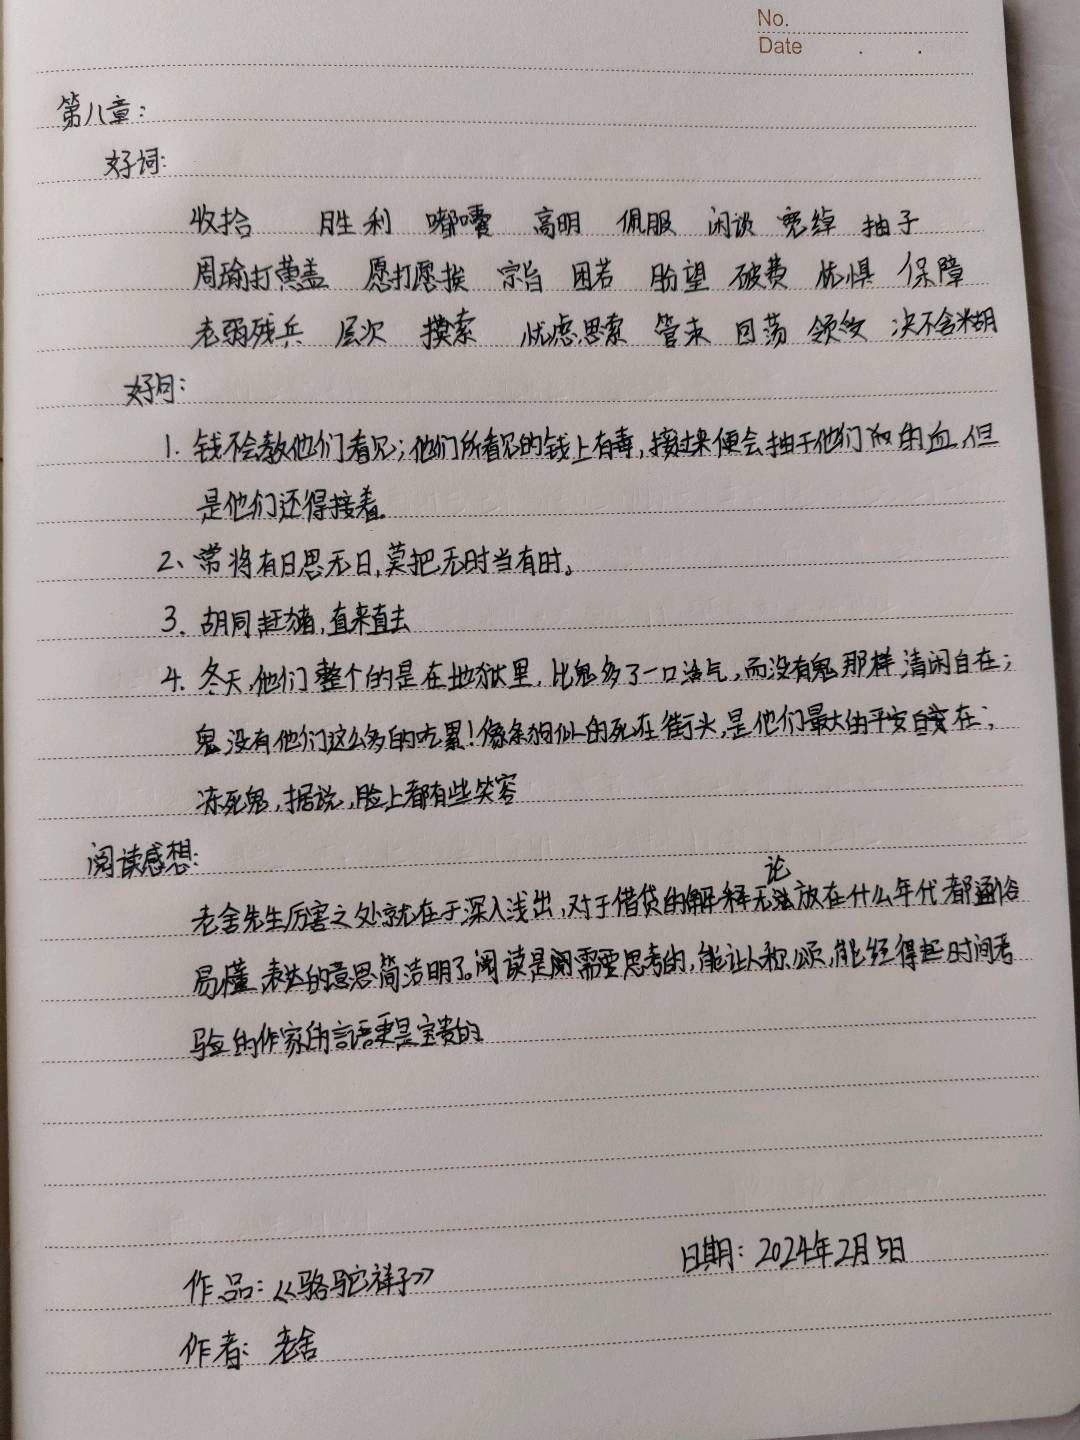 No.
Date . .
第八章：
好词：
收拾 胜利 嘟囔 高明 佩服 闲谈 宽绰 抽子
周瑜打黄盖 愿打愿挨 宗旨 困苦 盼望 破费 怯惧 保障
老弱残兵 层次 摸索 忧虑思索 管束 回荡 领纹 决不含糊
好句：
1. 钱不会教他们看见；他们所看见的钱上有毒，接过来便会抽干他们的血，但
是他们还得接着。
2、常将有日思无日，莫把无时当有时。
3. 胡同赶猪，直来直去
4. 冬天，他们整个的是在地狱里，比鬼多了一口活气，而没有鬼那样清闲自在；
鬼没有他们这么多的吃累！像条狗似的死在街头，是他们最大的平安自在；
冻死鬼，据说，脸上都有些笑容
阅读感想：
老舍先生厉害之处就在于深入浅出，对于借贷的解释无论放在什么年代都通俗
易懂，表达的意思简洁明了。阅读是需要思考的，能让人称颂，能经得起时间考
验的作家的言语更是宝贵的
日期：2024年2月5日
作品：《骆驼祥子》
作者：老舍